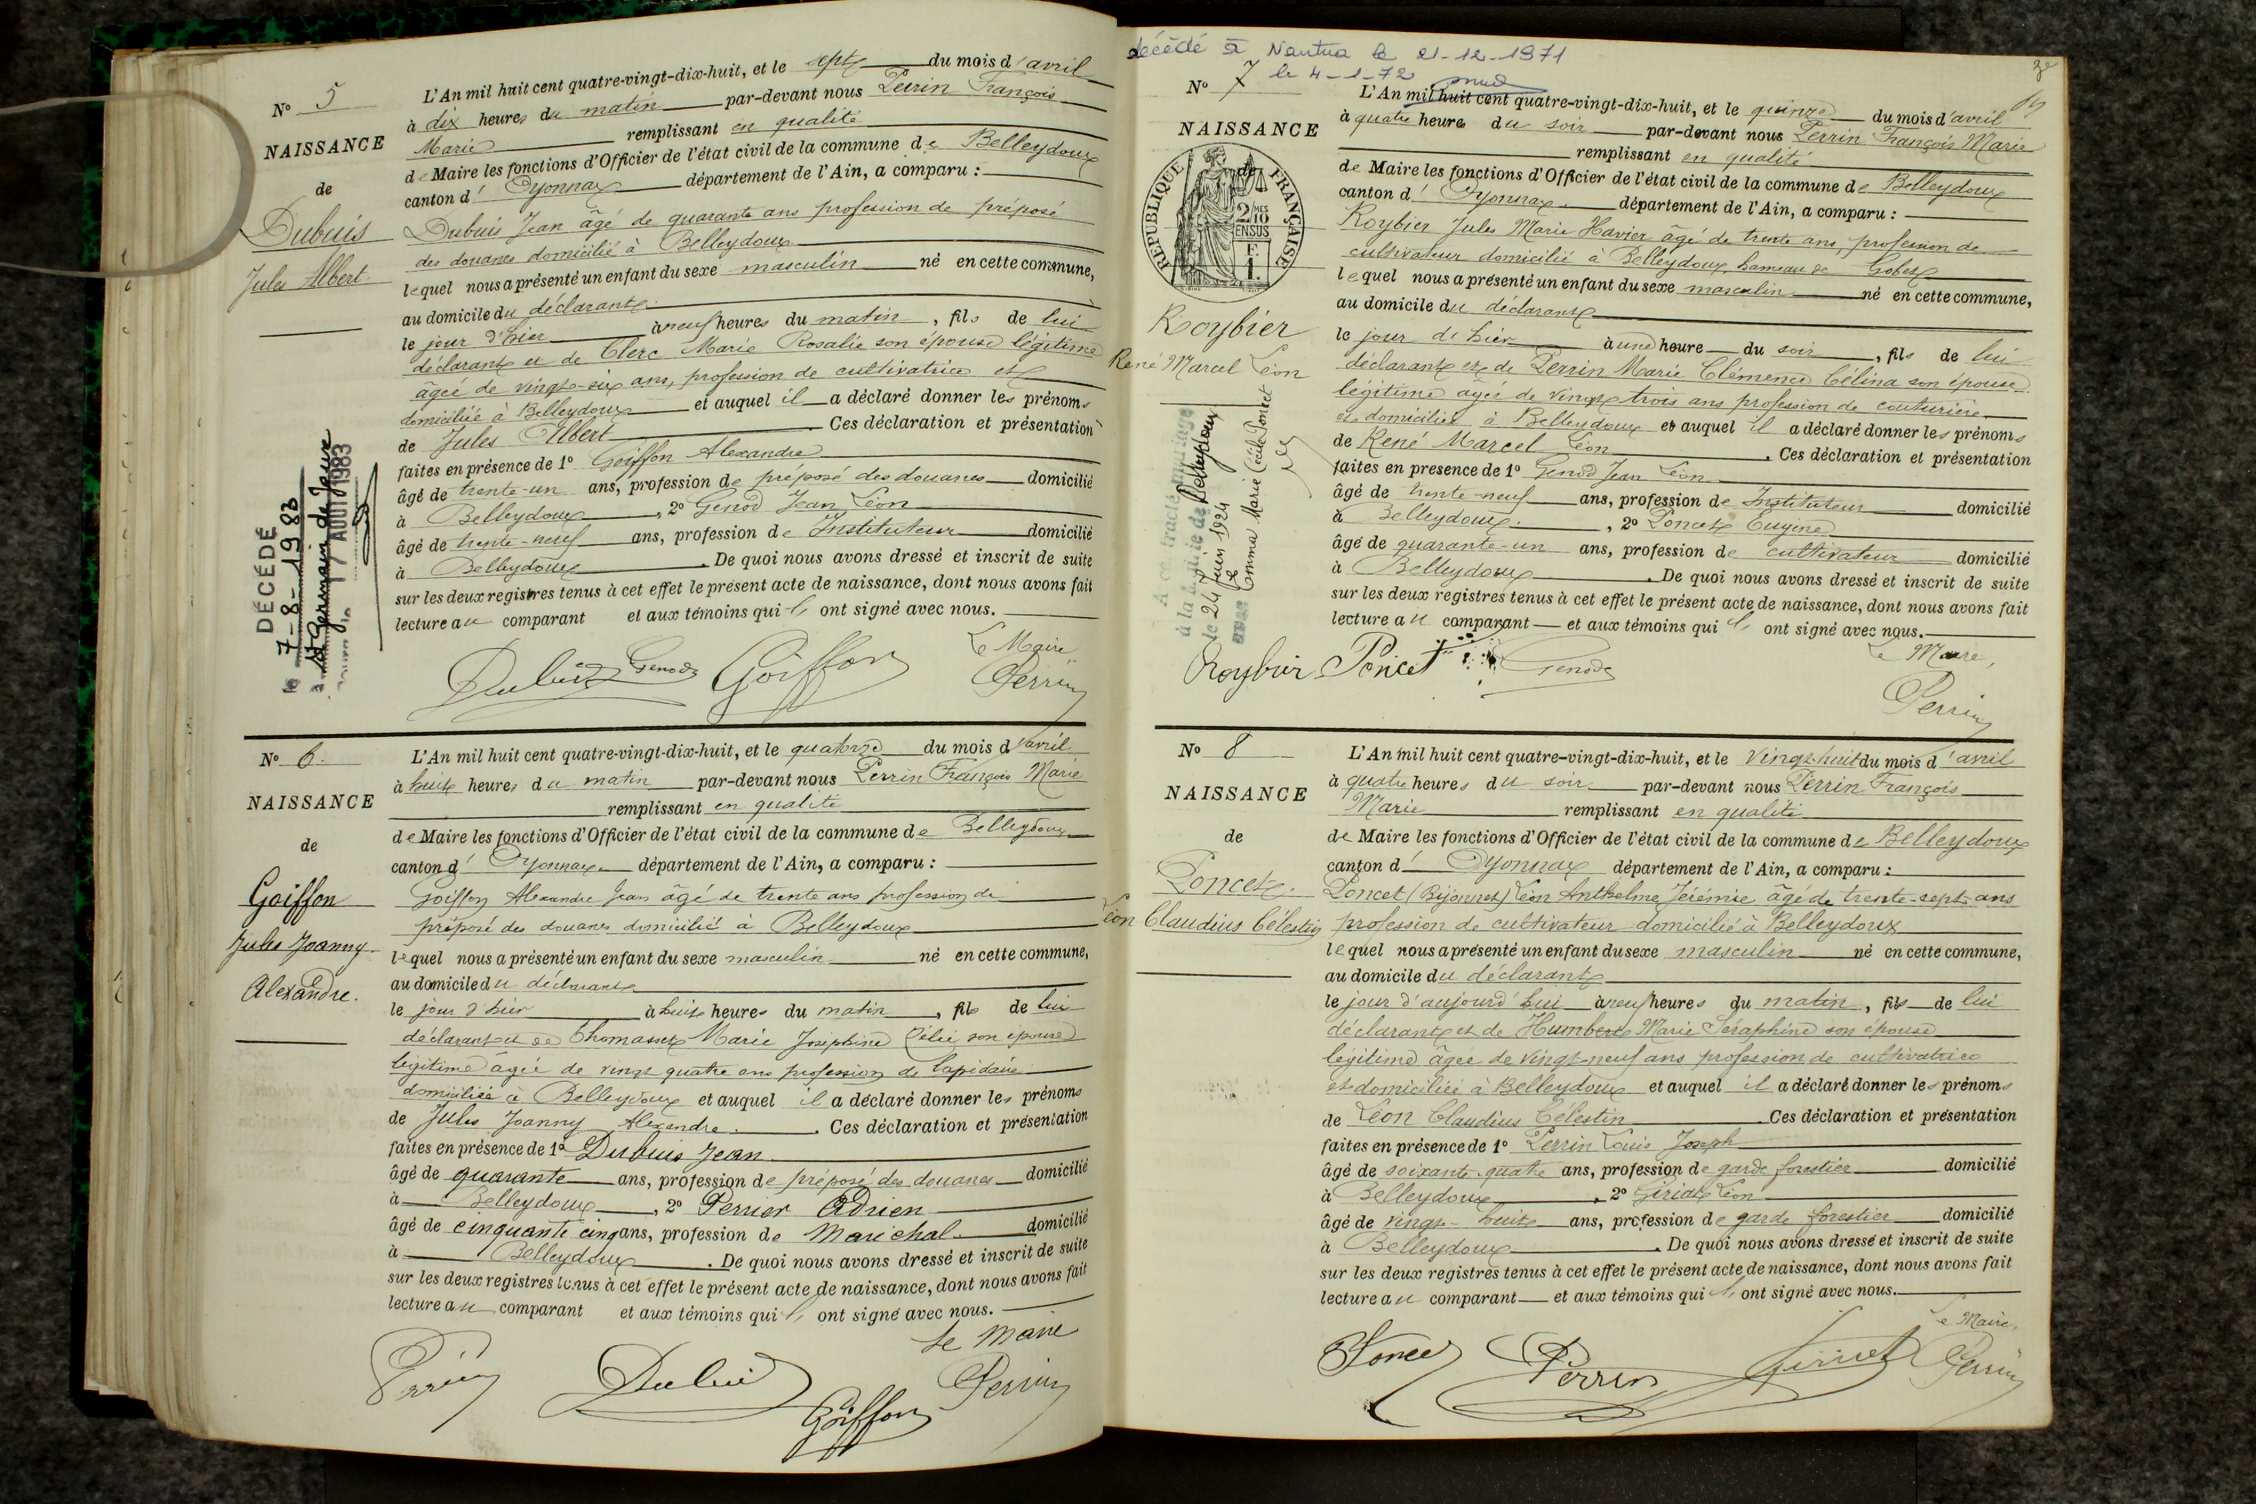 N° 5
NAISSANCE
de
Dubuis
Jules Albert
DÉCÉDÉ
le 7-8-1983
à St Germain de Joux
17 AOUT 1983
L'An mil huit cent quatre-vingt-dix-huit, et le sept du mois d'avril
à dix heures du matin par-devant nous Perrin François
Marie remplissant en qualité
de Maire les fonctions d'Officier de l'état civil de la commune de Belleydoux
canton d' Oyonnax département de l'Ain, a comparu :
Dubuis Jean âgé de quarante ans profession de préposé
des douanes domicilié à Belleydoux
lequel nous a présenté un enfant du sexe masculin né en cette commune,
au domicile du déclarant
le jour d'hier à neuf heures du matin, fils de lui
déclarant et de Clerc Marie Rosalie son épouse légitime
âgée de vingt-six ans, profession de cultivatrice et
domiciliée à Belleydoux et auquel il a déclaré donner les prénoms
de Jules Albert . Ces déclaration et présentation
faites en présence de 1° Goiffon Alexandre
âgé de trente-un ans, profession de préposé des douanes domicilié
à Belleydoux, 2° Genod Jean Léon
âgé de trente-neuf ans, profession de Instituteur domicilié
à Belleydoux . De quoi nous avons dressé et inscrit de suite
sur les deux registres tenus à cet effet le présent acte de naissance, dont nous avons fait
lecture au comparant et aux témoins qui ont signé avec nous.
Le Maire
Dubuis Genod Goiffon Perrin
N° 6.
NAISSANCE
de
Goiffon
Jules Joanny
Alexandre.
L'An mil huit cent quatre-vingt-dix-huit, et le quatorze du mois d'avril
à huit heures du matin par-devant nous Perrin François Marie
remplissant en qualité
de Maire les fonctions d'Officier de l'état civil de la commune de Belleydoux
canton d' Oyonnax département de l'Ain, a comparu :
Goiffon Alexandre Jean âgé de trente ans profession de
préposé des douanes domicilié à Belleydoux
lequel nous a présenté un enfant du sexe masculin né en cette commune,
au domicile du déclarant
le jour d'hier à huit heures du matin, fils de lui
déclarant et de Thomasset Marie Joséphine Célie son épouse
légitime âgée de vingt quatre ans profession de lapidaire
domiciliée à Belleydoux et auquel il a déclaré donner les prénoms
de Jules Joanny Alexandre. . Ces déclaration et présentation
faites en présence de 1° Dubuis Jean
âgé de quarante ans, profession de préposé des douanes domicilié
à Belleydoux, 2° Perrier Adrien
âgé de cinquante cinq ans, profession de Maréchal domicilié
à Belleydoux . De quoi nous avons dressé et inscrit de suite
sur les deux registres tenus à cet effet le présent acte de naissance, dont nous avons fait
lecture au comparant et aux témoins qui ont signé avec nous.
Le Maire
Dubuis Goiffon Perrin
décédé à Nantua le 21-12-1971
le 4-1-72
N° 7
NAISSANCE
de
RÉPUBLIQUE FRANÇAISE
2/10 EN SUS
1 F.
Roybier
René Marcel Léon
A contracté mariage
à la mairie de Belleydoux
le 24 juin 1924
avec Emma Marie Cécile Poncet
L'An mil huit cent quatre-vingt-dix-huit, et le quinze du mois d'avril
à quatre heures du soir par-devant nous Perrin François Marie
remplissant en qualité
de Maire les fonctions d'Officier de l'état civil de la commune de Belleydoux
canton d' Oyonnax département de l'Ain, a comparu :
Roybier Jules Marie Xavier âgé de trente ans, profession de
cultivateur domicilié à Belleydoux, hameau de Gobet
lequel nous a présenté un enfant du sexe masculin né en cette commune,
au domicile du déclarant
le jour d'hier à une heure du soir, fils de lui
déclarant et de Perrin Marie Clémence Célina son épouse
légitime âgée de vingt trois ans profession de couturière
et domiciliée à Belleydoux et auquel il a déclaré donner les prénoms
de René Marcel Léon . Ces déclaration et présentation
faites en présence de 1° Genod Jean Léon
âgé de trente-neuf ans, profession de Instituteur domicilié
à Belleydoux, 2° Poncet Eugène
âgé de quarante-un ans, profession de cultivateur domicilié
à Belleydoux . De quoi nous avons dressé et inscrit de suite
sur les deux registres tenus à cet effet le présent acte de naissance, dont nous avons fait
lecture au comparant et aux témoins qui ont signé avec nous.
Le Maire,
Roybier Poncet Genod
Perrin
N° 8
NAISSANCE
de
Poncet.
Léon Claudius Célestin
L'An mil huit cent quatre-vingt-dix-huit, et le vingt-huit du mois d'avril
à quatre heures du soir par-devant nous Perrin François
Marie remplissant en qualité
de Maire les fonctions d'Officier de l'état civil de la commune de Belleydoux
canton d' Oyonnax département de l'Ain, a comparu :
Poncet (Bijonnet) Léon Anthelme Jérémie âgé de trente-sept ans
profession de cultivateur domicilié à Belleydoux
lequel nous a présenté un enfant du sexe masculin né en cette commune,
au domicile du déclarant
le jour d'aujourd'hui à neuf heures du matin, fils de lui
déclarant et de Humbert Marie Séraphine son épouse
légitime âgée de vingt-neuf ans profession de cultivatrice
et domiciliée à Belleydoux et auquel il a déclaré donner les prénoms
de Léon Claudius Célestin . Ces déclaration et présentation
faites en présence de 1° Perrin Louis Joseph
âgé de soixante-quatre ans, profession de garde forestier domicilié
à Belleydoux, 2° Léon
âgé de vingt-huit ans, profession de garde forestier domicilié
à Belleydoux . De quoi nous avons dressé et inscrit de suite
sur les deux registres tenus à cet effet le présent acte de naissance, dont nous avons fait
lecture au comparant et aux témoins qui ont signé avec nous.
Le Maire,
Poncet Perrin Perrin